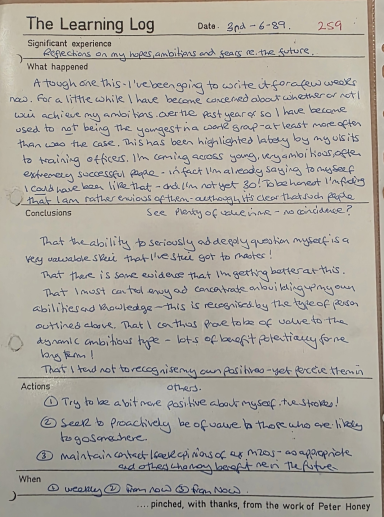 The Learning Log
Date 3nd-6-89. 259
Significant experience
Reflections on my hopes, ambitions and fears re. the future.
What happened
A tough one this - I've been going to write it for a few weeks
now. For a little while I have become concerned about whether or not I
will achieve my ambitions. Over the past year or so I have become
used to not being the youngest in a work group - at least more often
than was the case. This has been highlighted lately by my visits
to training officers. I'm coming across young, very ambitious, often
extremely successful people - in fact I'm already saying to myself
I could have been like that - and I'm not yet 30! To be honest I'm finding
that I am rather envious of them - although it's clear that such people
see plenty of value in me - no coincidence?
Conclusions
That the ability to seriously and deeply question myself is a
very valuable skill that I've still got to master!
That there is some evidence that I'm getting better at this.
That I must control envy and concentrate on building up my own
abilities and knowledge - this is recognised by the type of person
outlined above. That I can thus prove to be of value to the
dynamic ambitious type - lots of benefit potentially for me
long term!
That I tend not to recognise my own positives - yet perceive them in
others.
Actions
① Try to be a bit more positive about myself. +ve strokes!
② Seek to proactively be of value to those who are likely
to go somewhere.
③ maintain contact / seek opinions of as appropriate
and others who may benefit me in the future
When
① weekly ② from now ③ from now.
.... pinched, with thanks, from the work of Peter Honey